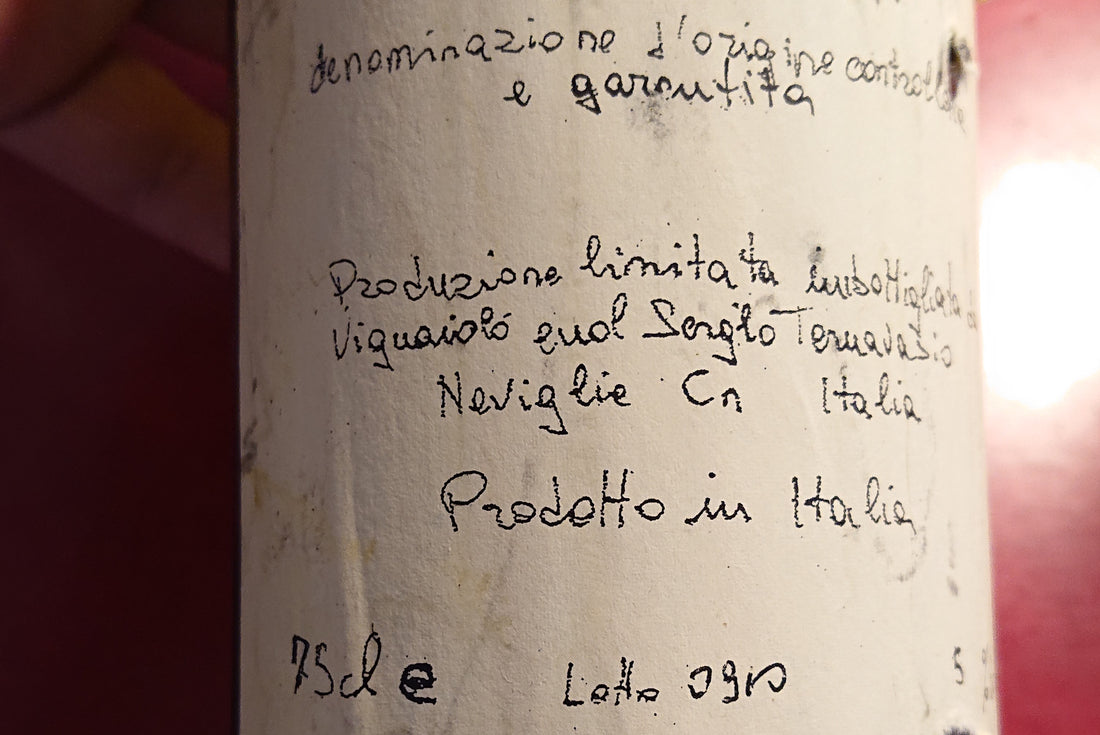 denominazione d'origine controllata
e garantita
Produzione limitata imbottigliata da
Viguaioló enol Sergio Ternavasio
Neviglie Cn Italia
Prodotto in Italia
75cl e Lotto 5